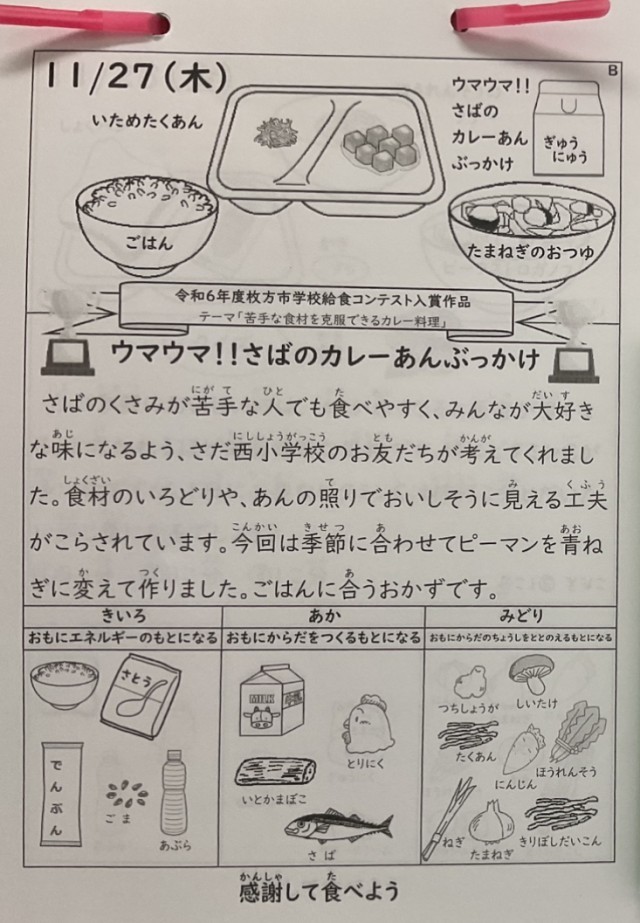 11/27(木)
B
いためたくあん
ウマウマ!!
さばの
カレーあん
ぶっかけ
ぎゅう
にゅう
ごはん
たまねぎのおつゆ
令和6年度枚方市学校給食コンテスト入賞作品
テーマ「苦手な食材を克服できるカレー料理」
ウマウマ!!さばのカレーあんぶっかけ
さばのくさみが苦手な人でも食べやすく、みんなが大好き
な味になるよう、さだ西小学校のお友だちが考えてくれまし
た。食材のいろどりや、あんの照りでおいしそうに見える工夫
がこらされています。今回は季節に合わせてピーマンを青ね
ぎに変えて作りました。ごはんに合うおかずです。
きいろ
あか
みどり
おもにエネルギーのもとになる
おもにからだをつくるもとになる
おもにからだのちょうしをととのえるもとになる
さとう
MILK
つちしょうが
しいたけ
とりにく
たくあん
にんじん
ほうれんそう
でんぷん
ごま
あぶら
いとかまぼこ
さば
ねぎ
たまねぎ
きりぼしだいこん
感謝して食べよう